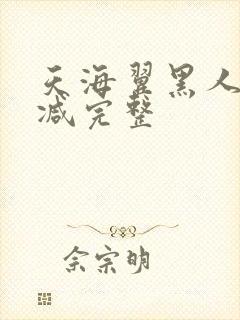 天海翼黑人
减完整
佘宗明